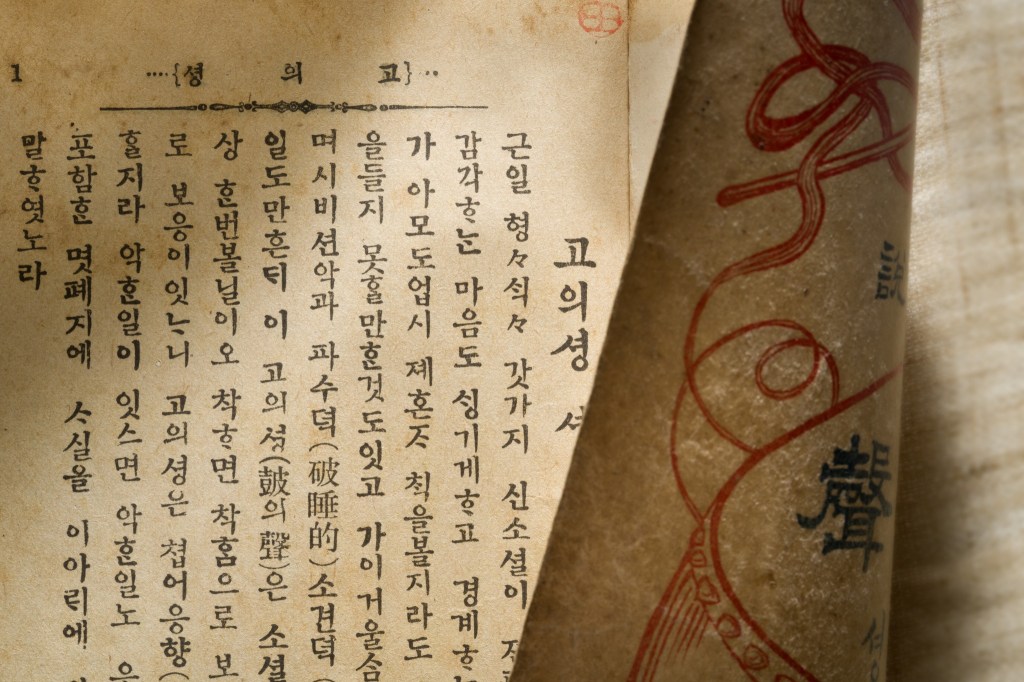 1 ····{셩 의 고}··
고의셩
근일 형々ᄉᆡᆨ々 갓가지 신소셜이
감각ᄒᆞᄂᆞᆫ 마음도 ᄉᆡᆼ기게ᄒᆞ고 경계ᄒᆞ
가 아모도업시 졔혼ᄌᆞ ᄎᆡᆨ을볼지라도
을들지 못ᄒᆞᆯ만ᄒᆞᆫ것도잇고 가이거울
며시비션악과 파수덕(破睡的)소견덕(
일도만흔ᄃᆡ 이 고의셩(鼓의聲)은 소셜
상 ᄒᆞᆫ번볼닐이오 착ᄒᆞ면 착ᄒᆞᆷ으로 보
로 보응이잇ᄂᆞ니 고의셩은 쳡어응향(
ᄒᆞᆯ지라 악ᄒᆞᆫ일이 잇스면 악ᄒᆞᆫ일노
포함ᄒᆞᆫ 몃폐지에 ᄉᆞ실을 이아ᄅᆡ에
말ᄒᆞ엿노라
說
聲